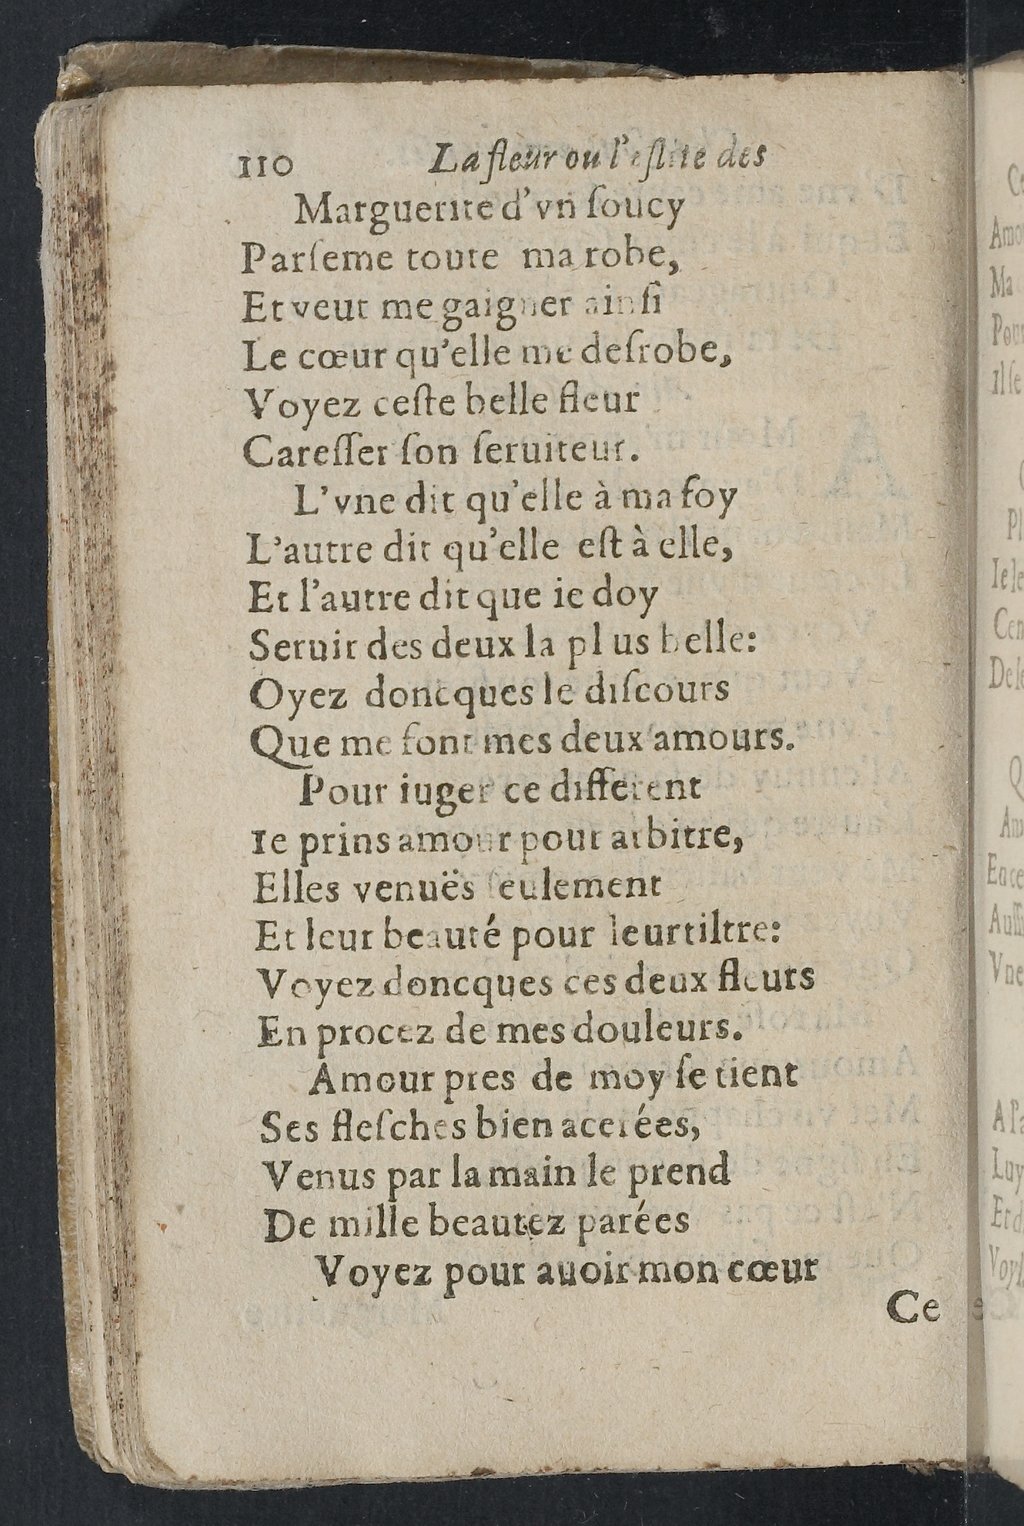 110 La fleur ou l'eslite des
Marguerite d'vn ſoucy
Parſeme toute ma robe,
Et veut me gaigner ainſi
Le cœur qu'elle me deſrobe,
Voyez ceſte belle fleur
Careſſer ſon ſeruiteur.
L'vne dit qu'elle à ma foy
L'autre dit qu'elle eſt à elle,
Et l'autre dit que ie doy
Seruir des deux la plus belle:
Oyez doncques le diſcours
Que me font mes deux amours.
Pour iuger ce different
Ie prins amour pour arbitre,
Elles venuës ſeulement
Et leur beauté pour leur tiltre:
Voyez doncques ces deux fleurs
En procez de mes douleurs.
Amour pres de moy ſe tient
Ses fleſches bien acerées,
Venus par la main le prend
De mille beautez parées
Voyez pour auoir mon cœur
Ce